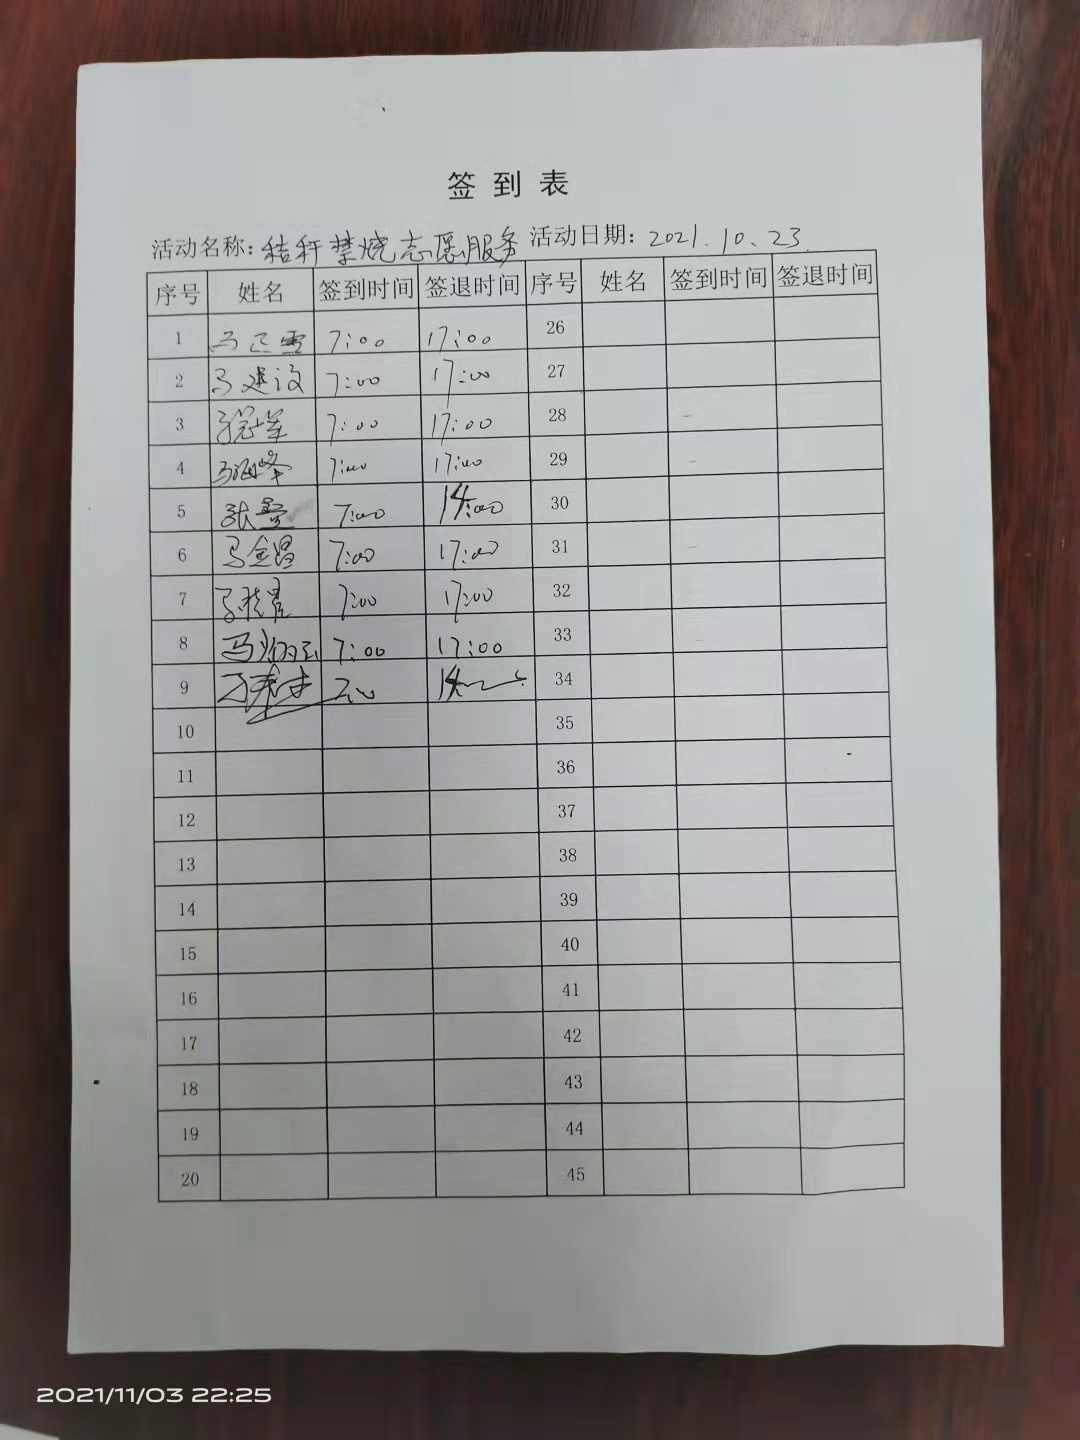 签到表
活动名称: 秸秆禁烧志愿服务 活动日期: 2021.10.23.
序号 姓名 签到时间 签退时间 序号 姓名 签到时间 签退时间
1 马 7:00 17:00 26
2 马建设 7:00 17:00 27
3 7:00 17:00 28
4 马海峰 7:00 17:00 29
5 张 7:00 14:00 30
6 马金昌 7:00 17:00 31
7 马 7:00 17:00 32
8 马 7:00 17:00 33
9 34
10 35
11 36
12 37
13 38
14 39
15 40
16 41
17 42
18 43
19 44
20 45
2021/11/03 22:25